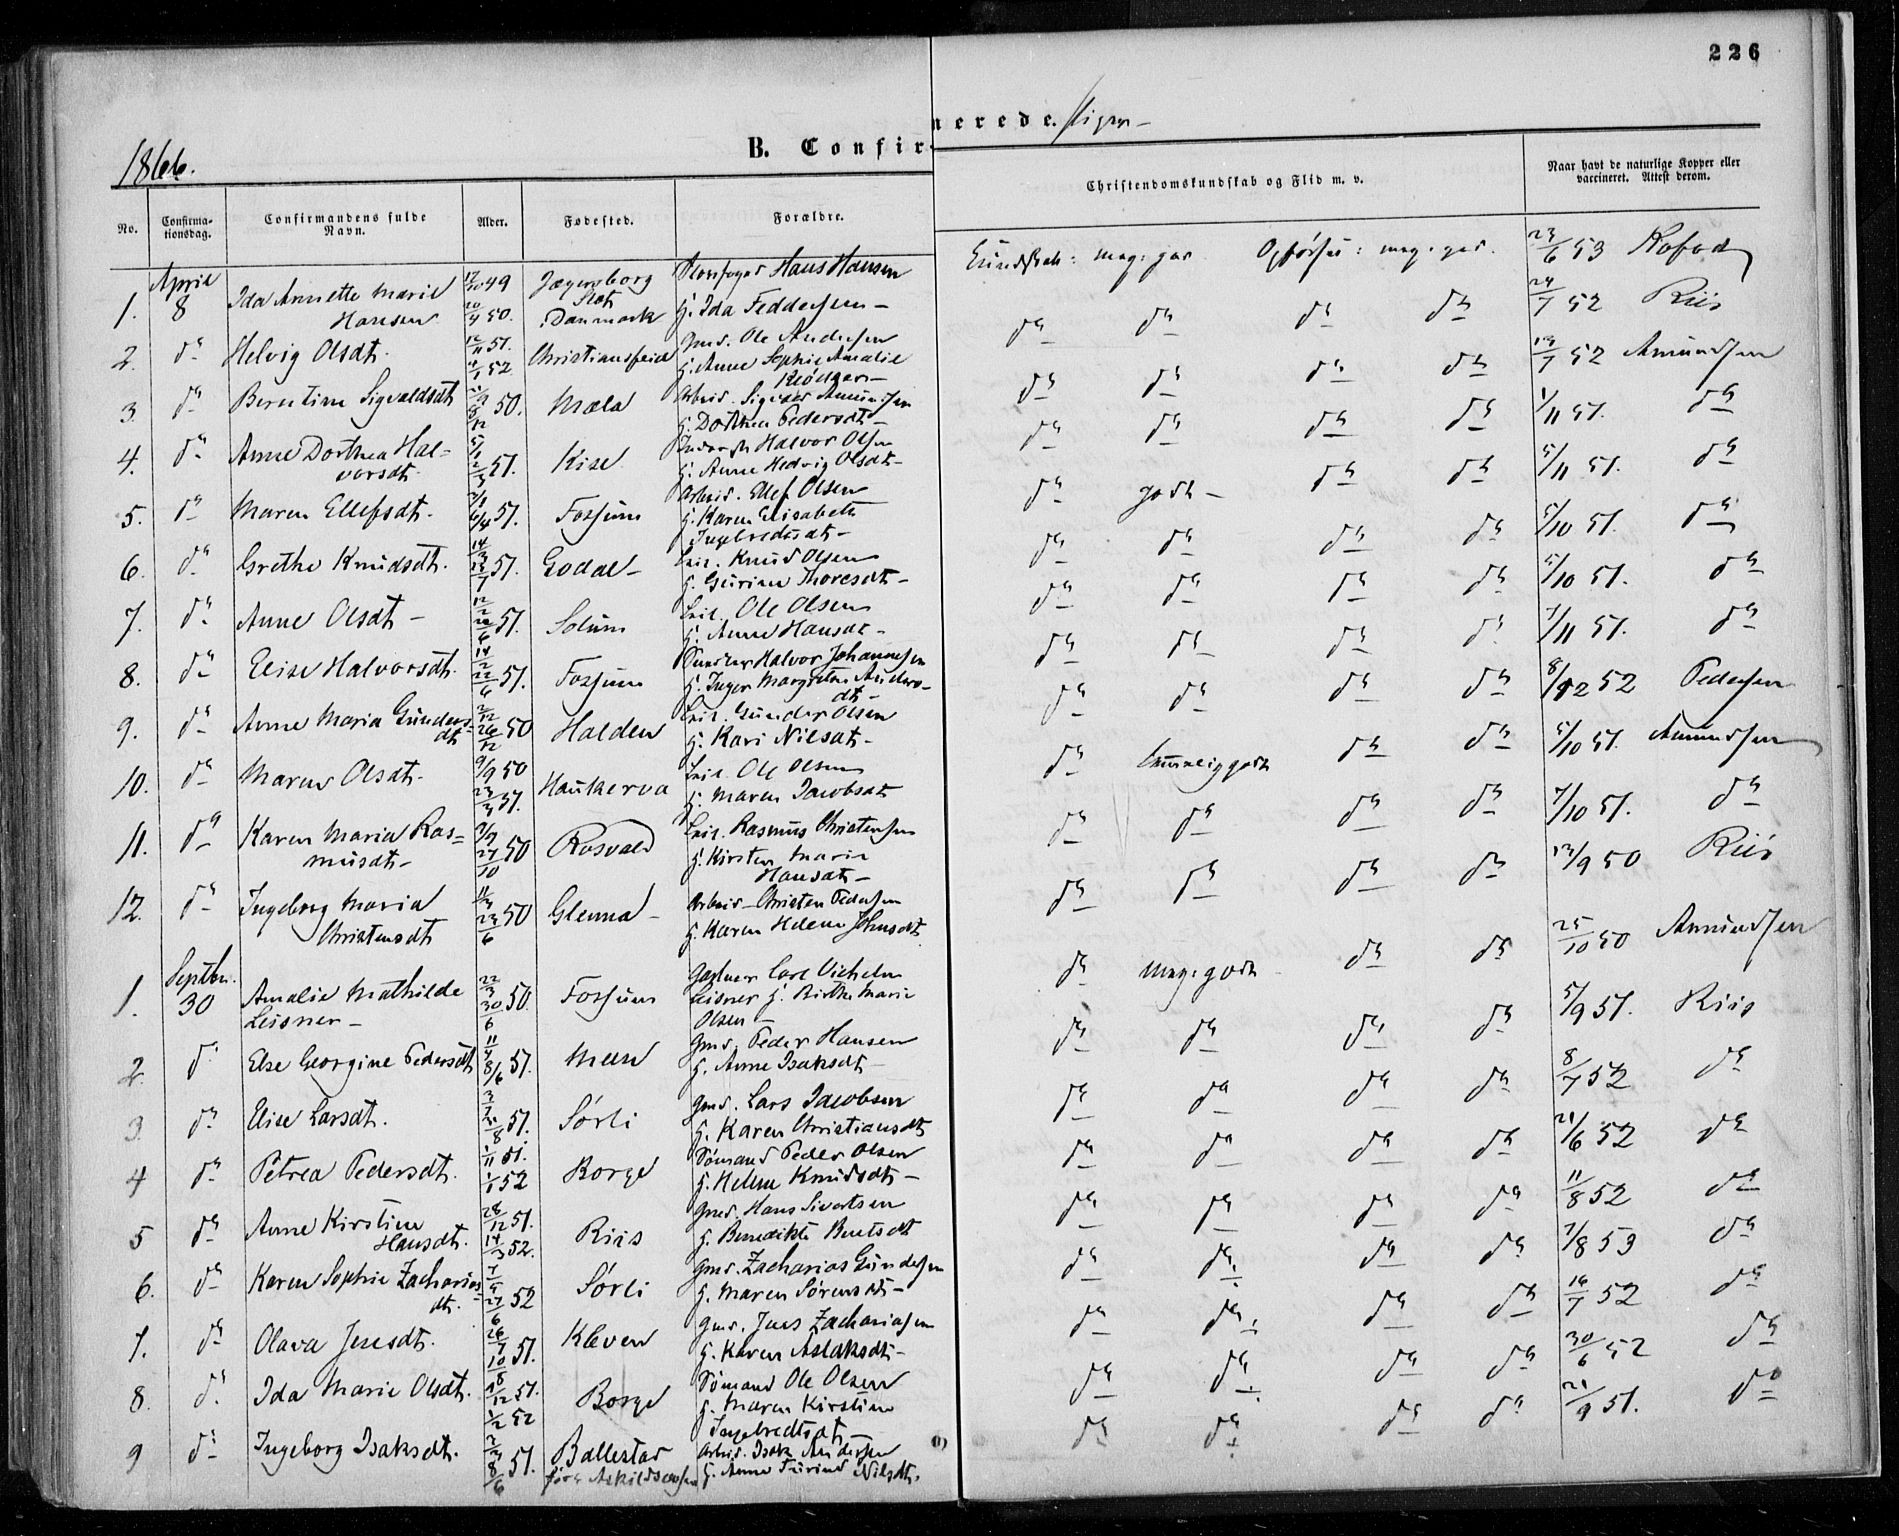 226
1866.
B. Confirmerede. Piger
No.
Confirmationsdag.
Confirmandens fulde Navn.
Alder.
Fødested.
Forældre.
Christendomskundskab og Flid m. v.
Naar havt de naturlige Kopper eller vaccineret. Attest derom.
April
1. 8 Ida Annette Marie Hansen 17/10 49 20/4 50. Jægersborg Slot Danmark Hans Hansen H. Ida Feddersen Kundskab: meg: god Opførsel: meg: god. 23/6 53 Kofod
2. do Helvig Olsdt. 12/11 51. 52 Christiansfeld Gmd. Ole Andersen H. Anne Sophie Amalie do do do do 24/7 52 Riis
3. do Berentine Sigvaldsdt 50. Mæla Arbeid. Sigvald Amundsen H. Dorthea Pedersdt do do do do 13/7 52 Amundsen
4. do Anne Dorthea Halvorsdt 5/1 51. Kise Halvor Olsen H. Anne Hedvig Olsdt do do do do 1/11 51. do
5. do Maren Ellefsdt. 6/4 51. Fossum Arbeid. Ellef Olsen H. Karen Elisabeth Ingebredtsdt do godt do do 5/11 51. do
6. do Grethe Knudsdt. 14/3 51. Godal Leil. Knud Olsen H. Gurine Thoresdt do do do do 5/10 51. do
7. do Anne Olsdt 12/2 51. Solum Leil. Ole Olsen H. Anne Hansdt do do do do 5/10 51. do
8. do Elise Halvorsdt. 14/2 22/6 51. Fossum Halvor Johannesen H. Inger Margrethe Andersdt do do do do 7/11 51. do
9. do Anne Maria Gundersdt 2/12 26/12 50 Halden Leil. Gunder Olsen H. Kari Nilsdt do do do do 8/12 52 Pedersen
10. do Maren Olsdt. 9/9 50 23/3 51. Haukerva Leil. Ole Olsen H. Maren Jacobsdt do temmelig godt do do 5/10 51. Amundsen
11. do Karen Maria Rasmusdt 27/10 50 Rosvald Leil. Rasmus Christensen H. Kirsten Marie Hansdt do do do do 7/10 51. do
12. do Ingeborg Maria Christensdt 11/3 23/6 50 Glenna Arbeid. Christen Pedersen H. Karen Helene Johnsdt do do do do 13/9 50 Riis
Septbr.
1. 30 Amalie Mathilde Leisner 22/3 30/6 50. Fossum Gartner Carl Vilhelm Leisner H. Birthe Marie Olsen do meg: godt do do 25/10 50 Amundsen
2. do Else Georgine Pedersdt 11/4 8/6 51. Meen Gmd. Peder Hansen H. Anne Isaksdt do do do do 5/9 51. Riis
3. do Elise Larsdt. 51. Sørli Gmd. Lars Jacobsen H. Karen Christiansdt do do do do 8/7 52 do
4 do Petrea Pedersdt. 1/11 51. 52 Borge Sømand Peder Olsen H. Helene Knudsdt do do do do 21/6 52 do
5 do Anne Kirstine Hansdt. 28/12 51. 14/3 52. Riis Gmd. Hans Sivertsen H. Benedikte Berntsdt do do do do 11/8 52 do
6. do Karen Sophie Zachariasdt. 27/6 52 Sørli Gmd. Zacharias Gundersen H. Maren Sørensdt do do do do 7/8 53 do
7. do Olava Jensdt. 26/7 51. Kleven Gmd. Jens Zachariasen H. Karen Aslaksdt do do do do 16/7 52 do
8. do Ida Marie Olsdt. 18/12 51. 1/2 52 Borge Sømand Ole Olsen H. Maren Kirstine Ingebredtsdt do do do do 30/6 52 do
9 do Ingeborg Isaksdt. 2/3 8/6 51. Ballestad Arbeid. Isak Andersen H. Anne Turine Nilsdt. do do do do 21/9 51. do